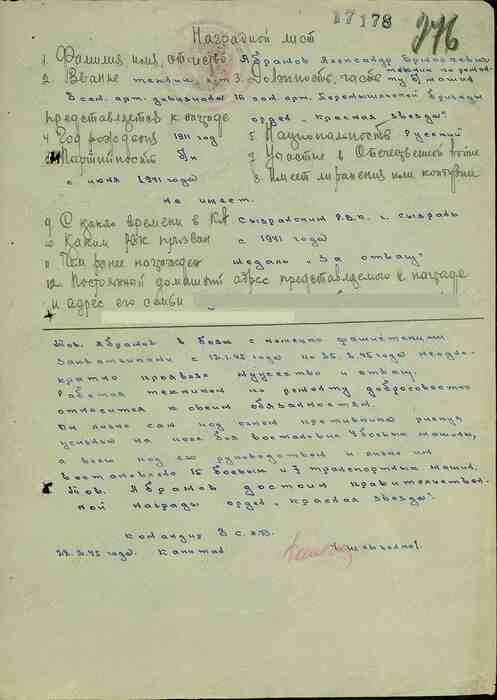 17 178 276
Наградной лист
1. Фамилия имя, отчество Абрамов Александр Григорьевич
2. Звание техник л-т 3. Должность, часть техник по ремон-
ту б/машин
8 сам. арт. дивизиона 16 сам. арт. Перемышльской бригады
представляется к награде орден „Красная звезда"
4. Год рождения 1911 год 5. Национальность Русский
6. Партийность б/п 7. Участие в Отечественной войне
с июля 1941 года 8. Имеет ли ранения или контузии
не имеет.
9. С какого времени в КА Сызранским Р.В.К. г. Сызрань
10. Каким РВК призван с 1941 года
11. Чем ранее награжден медаль „За отвагу"
12. Постоянный домашний адрес представляемого к награде
и адрес его семьи
Тов. Абрамов в боях с немецко фашистскими
захватчиками с 12.1.45 года по 25.3.45 года неодно-
кратно проявлял мужество и отвагу.
Работая техником по ремонту добросовестно
относится к своим обязанностям.
Он лично сам под огнем противника рискуя
жизнью на поле боя востановил 4 боевые машины,
а всего под его руководством и лично им
востановлено 15 боевых и 7 транспортных машин.
Тов. Абрамов достоин правительствен-
ной награды орден „Красная звезда".
Командир 8 С.А.Д.
Капитан